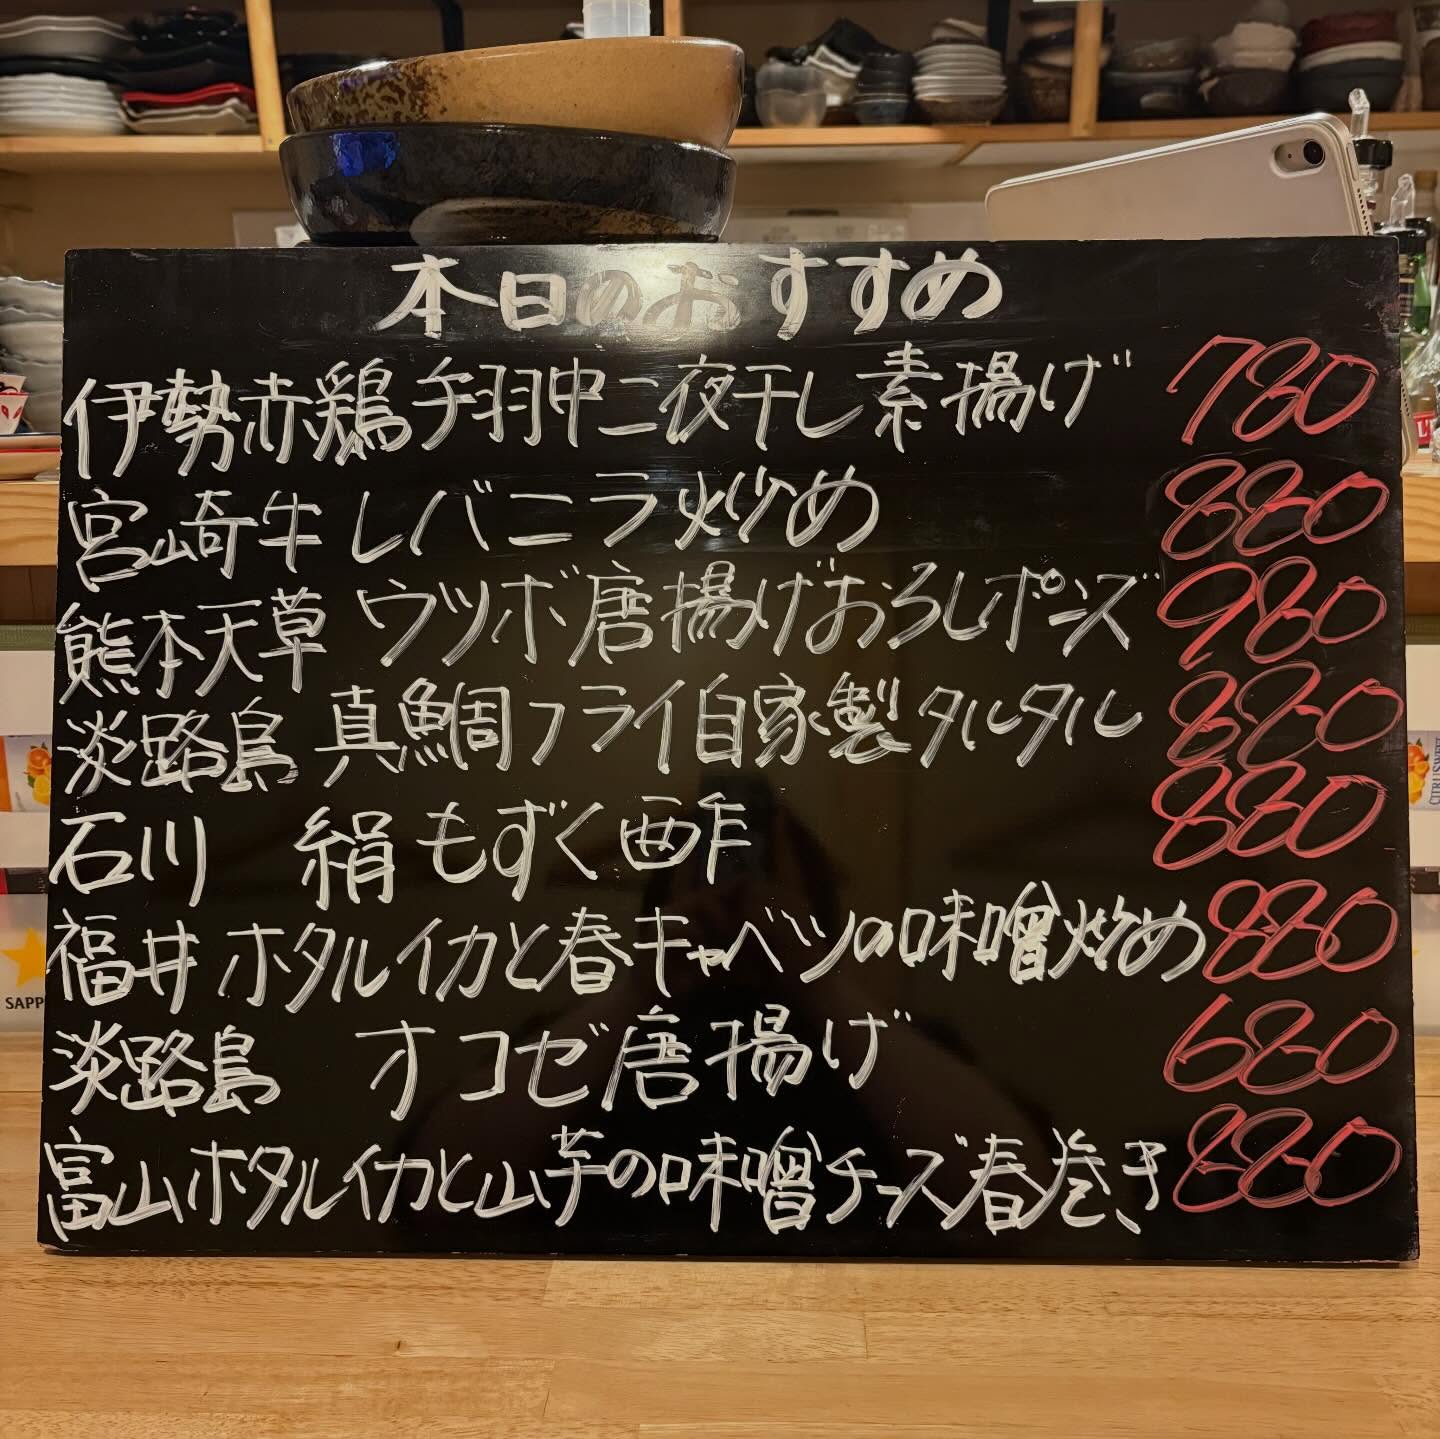 本日のおすすめ
伊勢赤鶏手羽中二夜干し素揚げ 780
宮崎牛レバニラ炒め 880
熊本天草 ウツボ唐揚げおろしポンズ 980
淡路島 真鯛フライ自家製タルタル 880
石川 絹もずく酢 880
福井ホタルイカと春キャベツの味噌炒め 880
淡路島 オコゼ唐揚げ 680
富山ホタルイカと山芋の味噌チーズ春巻き 880
SAPP
CITRUSWEET